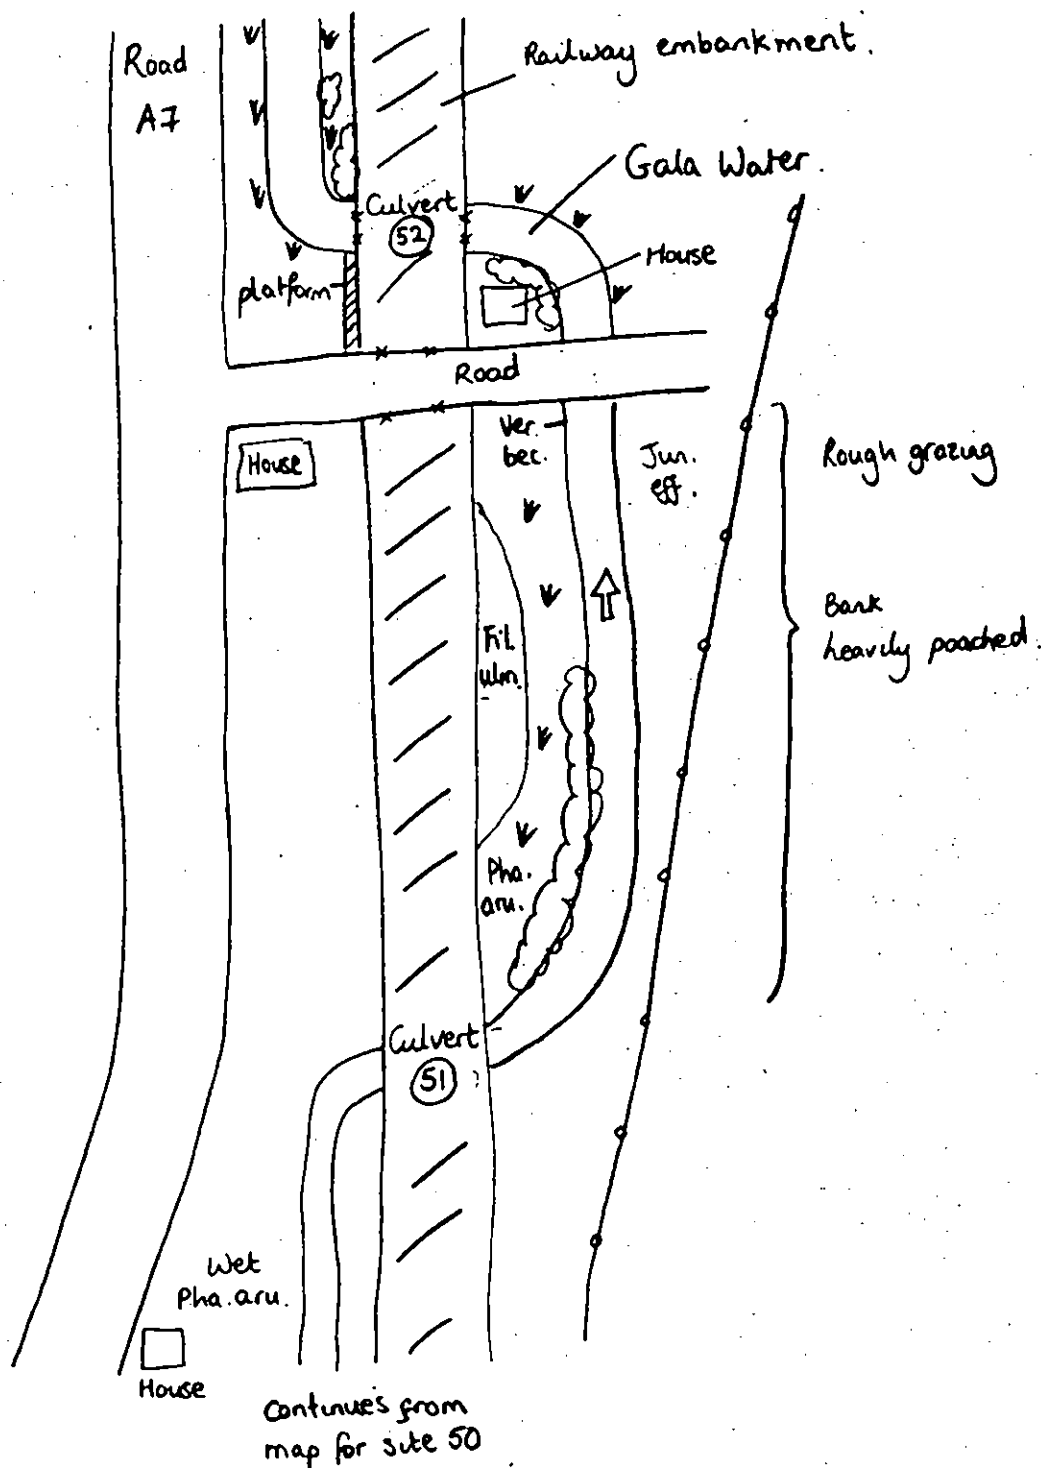 Road
A7
Railway embankment.
Gala Water.
Culvert
52
House
platform
Road
Ver.
bec.
Jun.
eff.
Rough grazing
House
Bank
heavily poached.
Fil.
ulm.
Pha.
aru.
Culvert
51
Wet
Pha. aru.
House
Continues from
map for site 50